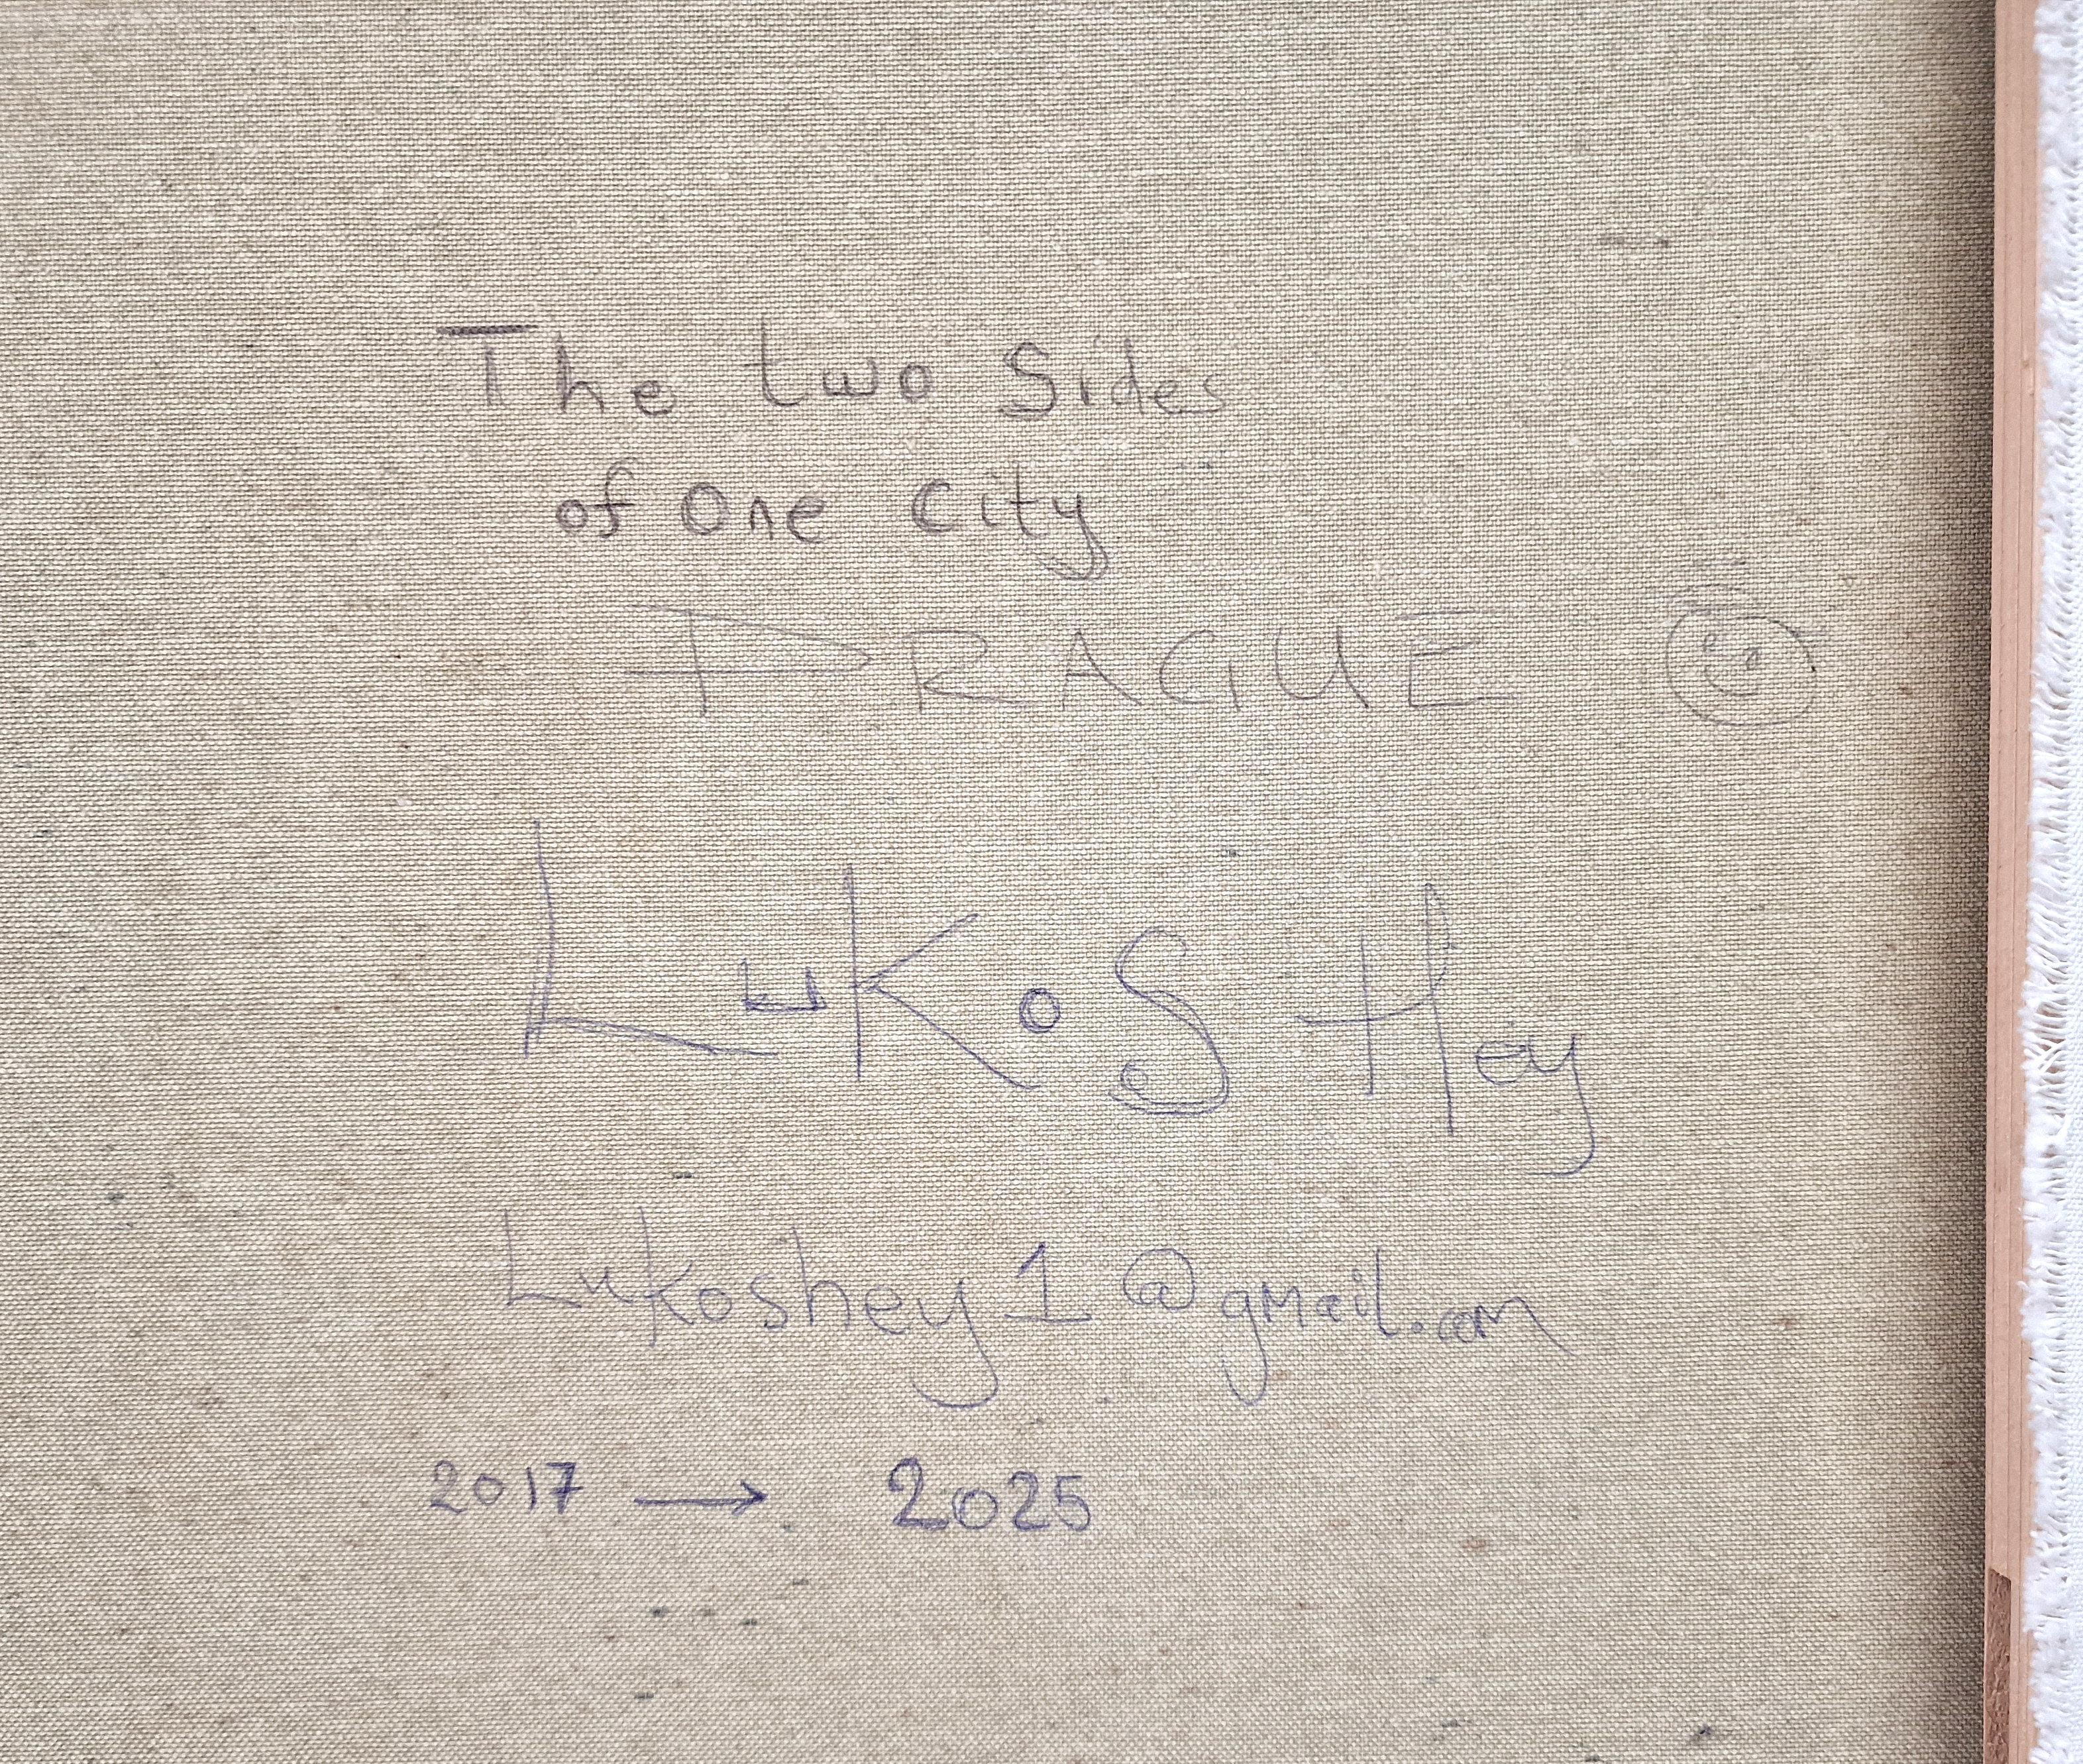 The two Sides
of One City
PRAGUE
LuKoS Hey
Lukoshey1@gmail.com
2017 → 2025